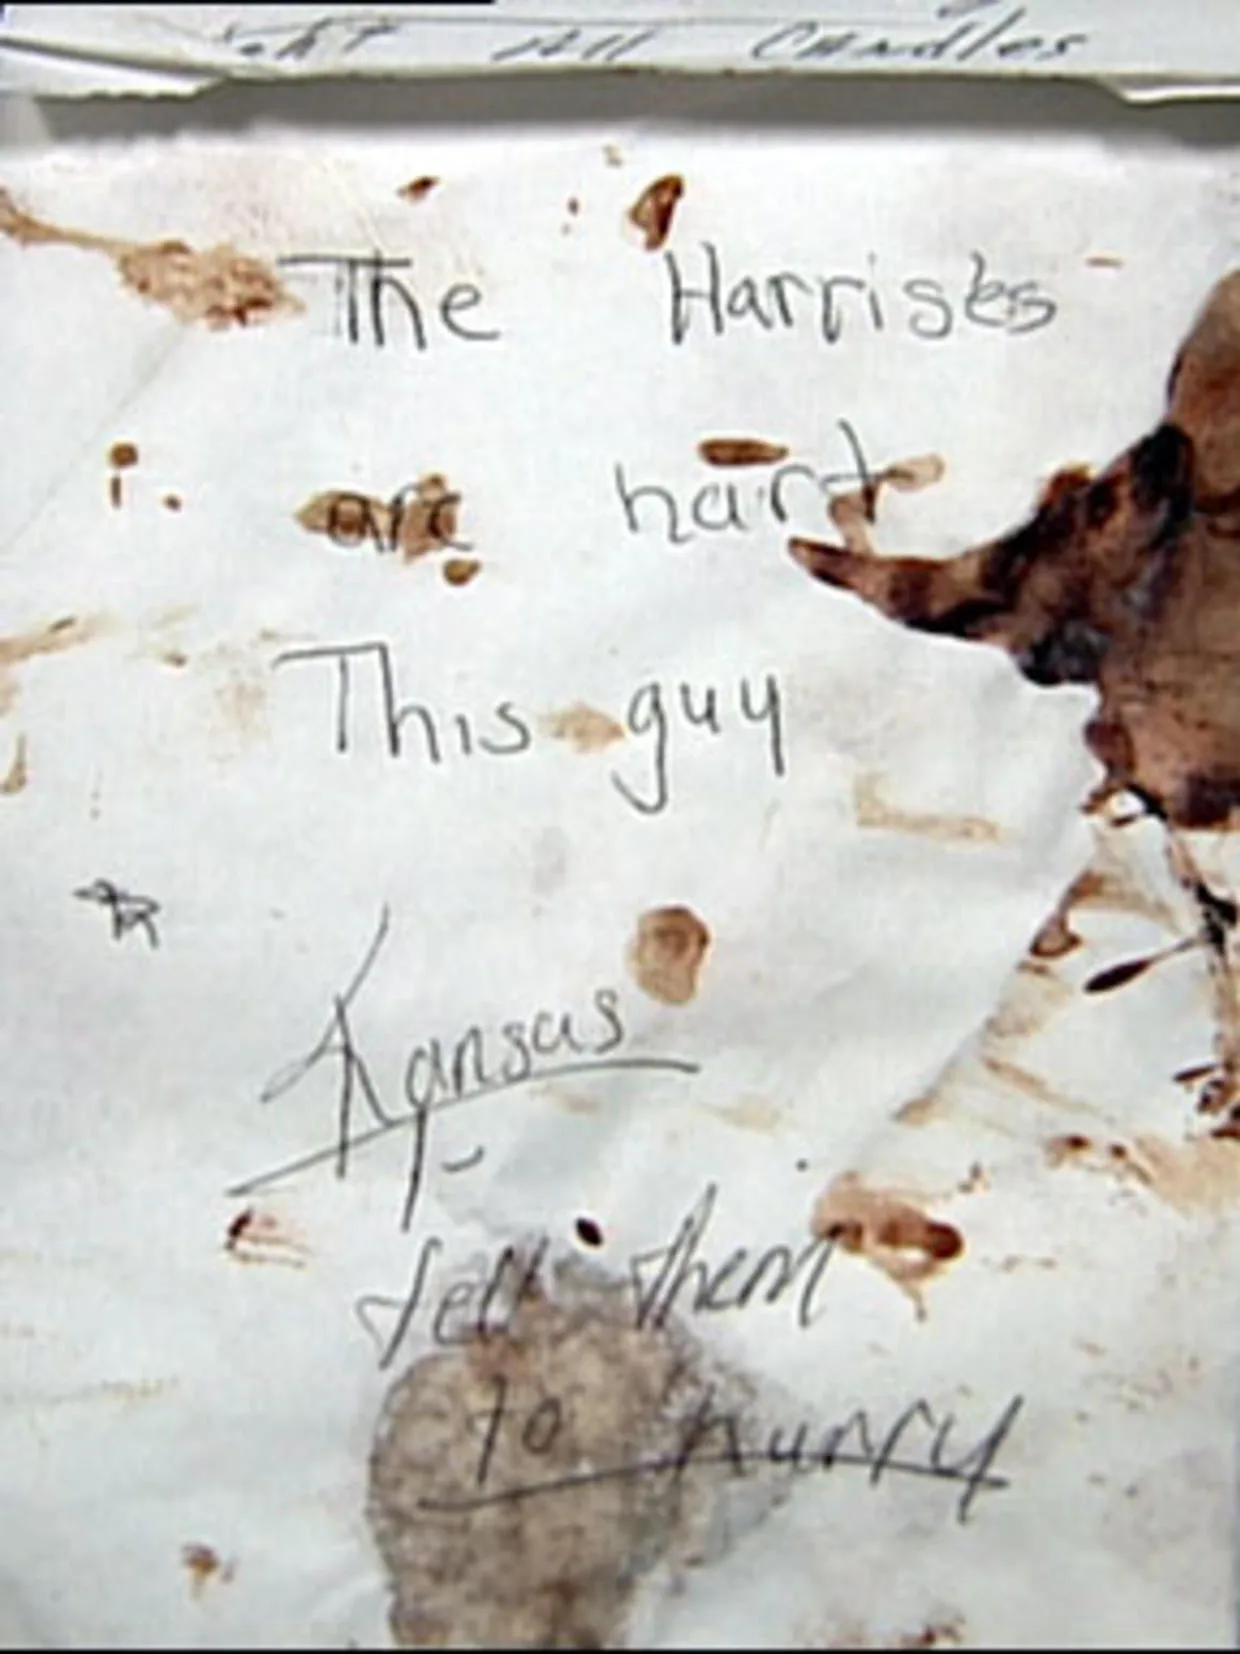 All Candles
The Harrises
are hurt
This guy
Kansas
tell them
to hurry